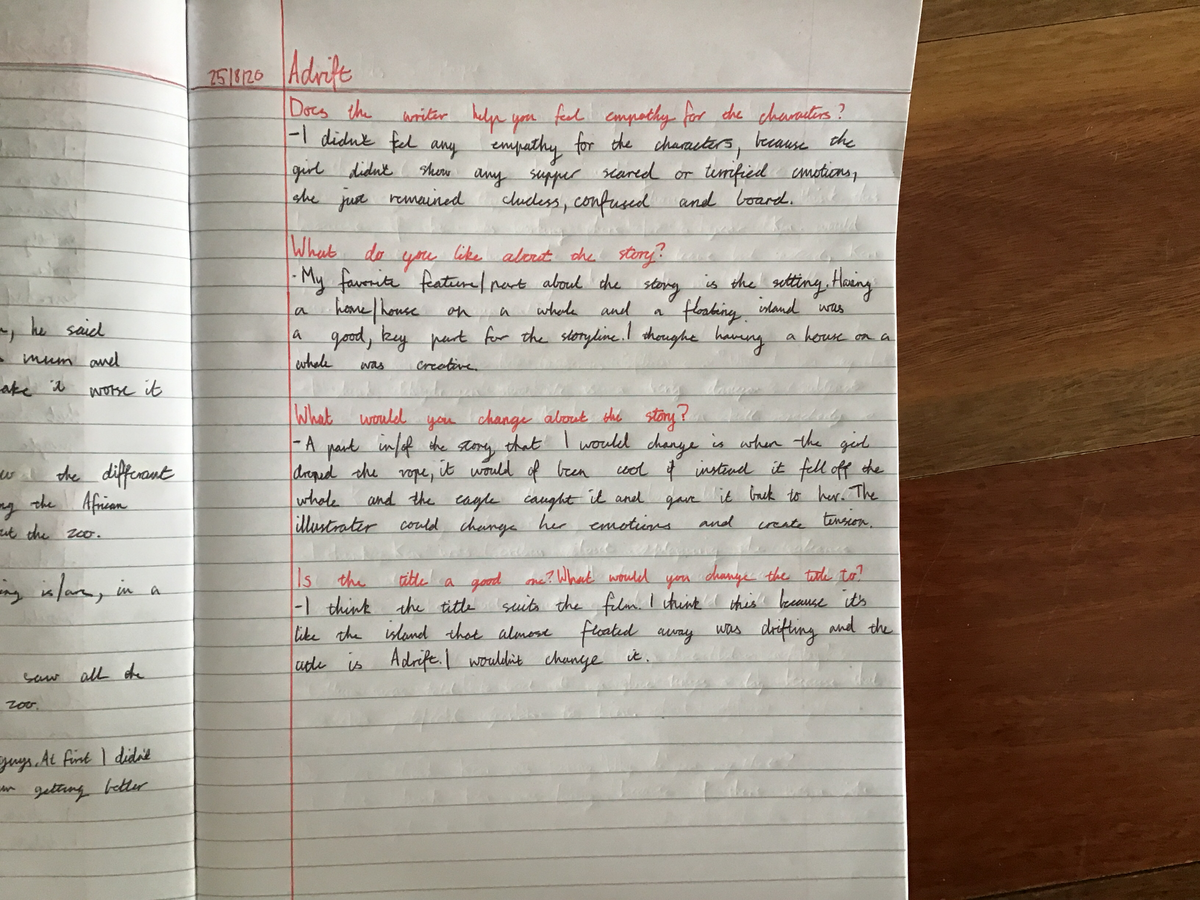 n, he said
mum and
ake it worse it
the different
ng the African
ut the zoo.
ing is/are, in a
saw all the
zoo.
guys. At first I didn't
getting better
25/8/20 Adrift
Does the writer help you feel empathy for the characters?
-I didn't fel any empathy for the characters, because the
girl didn't show any supper scared or terrified emotions,
she jus remained clueless, confused and board.
What do you like about the story?
-My favorite feature/part about the story is the setting. Having
a home/house on a whale and a floating island was
a good, key part for the storyline. I thought having a house on a
whale was creative.
What would you change about the story?
-A part in/of the story that I would change is when the girl
droped the rope, it would of been cool if instead it fell off the
whale and the eagle caught it and gave it back to her. The
illustrater could change her emotions and create tension.
Is the title a good one? What would you change the title to?
-I think the title suits the film. I think this because it's
like the island that almost floated away was drifting and the
title is Adrift. I wouldn't change it.